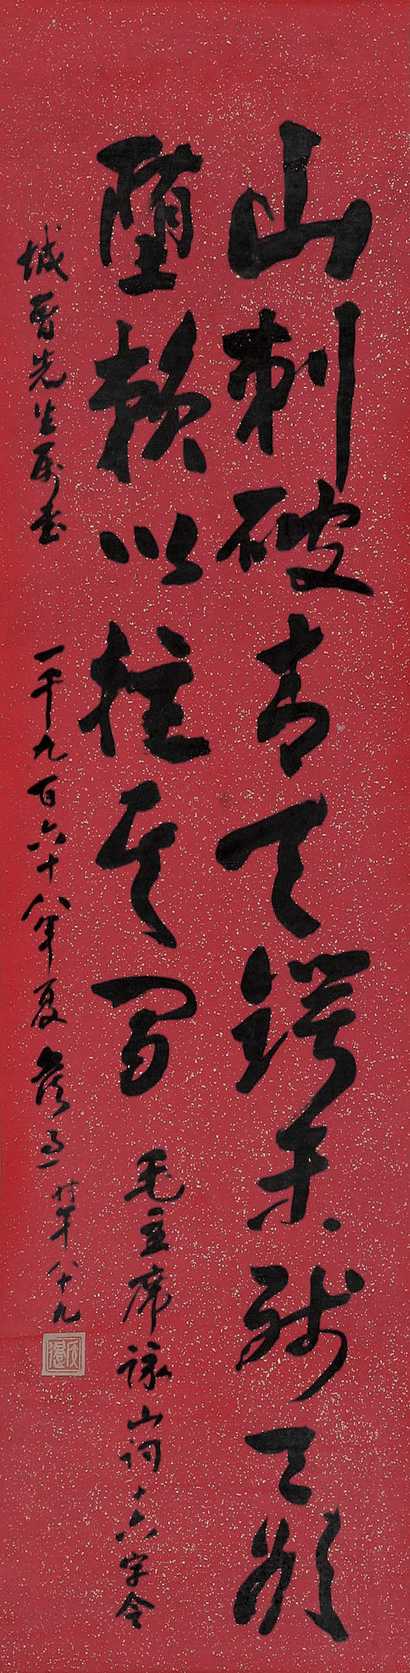 山刺破青天锷未残天欲
堕赖以拄其间
毛主席詠山词十六字令
城 先生属书
一千九百六十八年夏 时年八十九